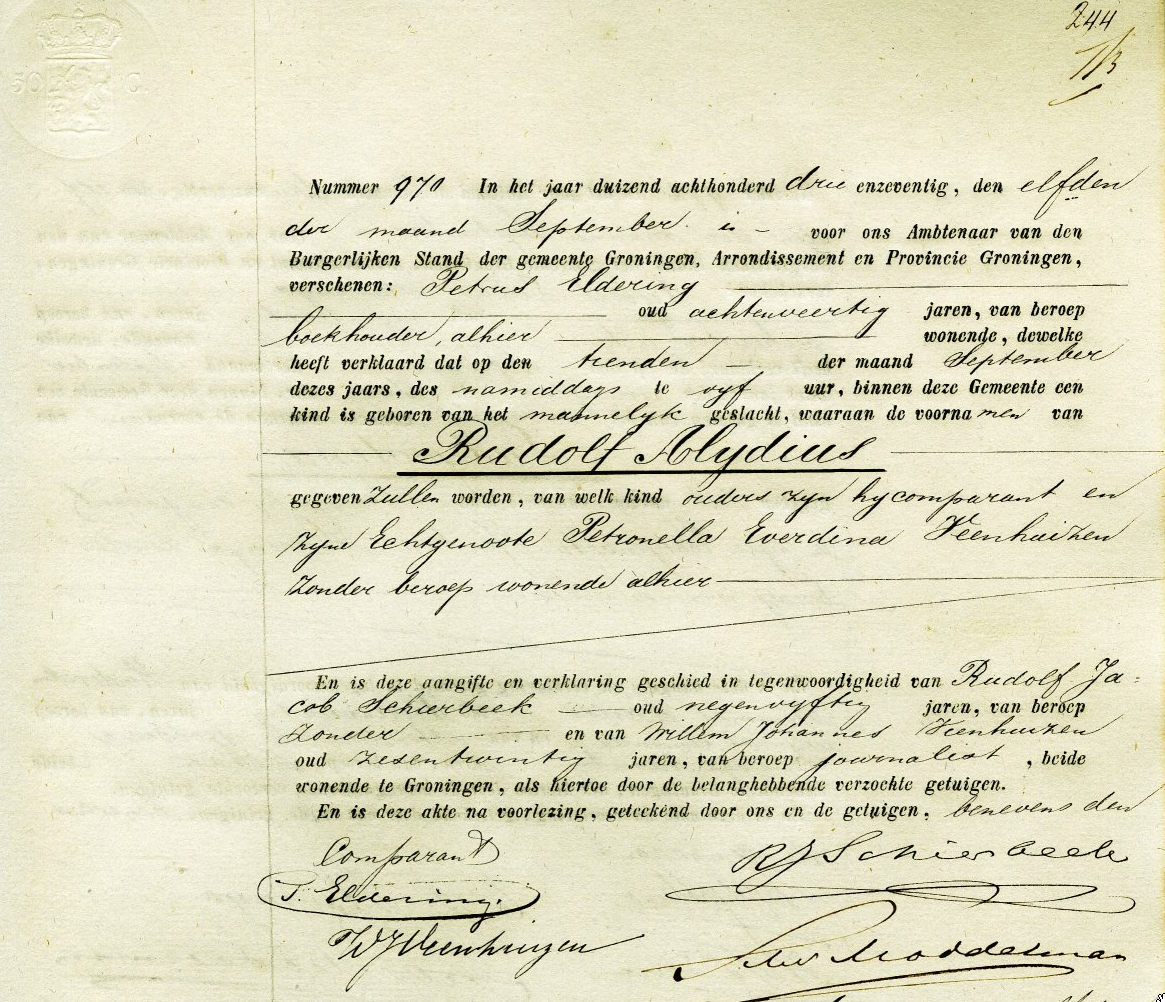 244
50 C.
Nummer 970 In het jaar duizend achthonderd drie enzeventig, den elfden
der maand September is voor ons Ambtenaar van den
Burgerlijken Stand der gemeente Groningen, Arrondissement en Provincie Groningen,
verschenen: Petrus Eldering
oud achtenveertig jaren, van beroep
boekhouder, alhier wonende, dewelke
heeft verklaard dat op den tienden der maand September
dezes jaars, des namiddags te vyf uur, binnen deze Gemeente een
kind is geboren van het mannelyk geslacht, waaraan de voornamen van
Rudolf Alydius
gegeven Zullen worden, van welk kind ouders zyn hy comparant en
Zyne Echtgenoote Petronella Everdina Veenhuizen
Zonder beroep wonende alhier
En is deze aangifte en verklaring geschied in tegenwoordigheid van Rudolf Ja=
cob Schierbeek oud negenvyftig jaren, van beroep
Zonder en van Willem Johannes Veenhuizen
oud zesentwintig jaren, van beroep journalist, beide
wonende te Groningen, als hiertoe door de belanghebbende verzochte getuigen.
En is deze akte na voorlezing, geteekend door ons en de getuigen, benevens den
Comparant
RJ Schierbeek
P. Eldering.
WJVeenhuizen